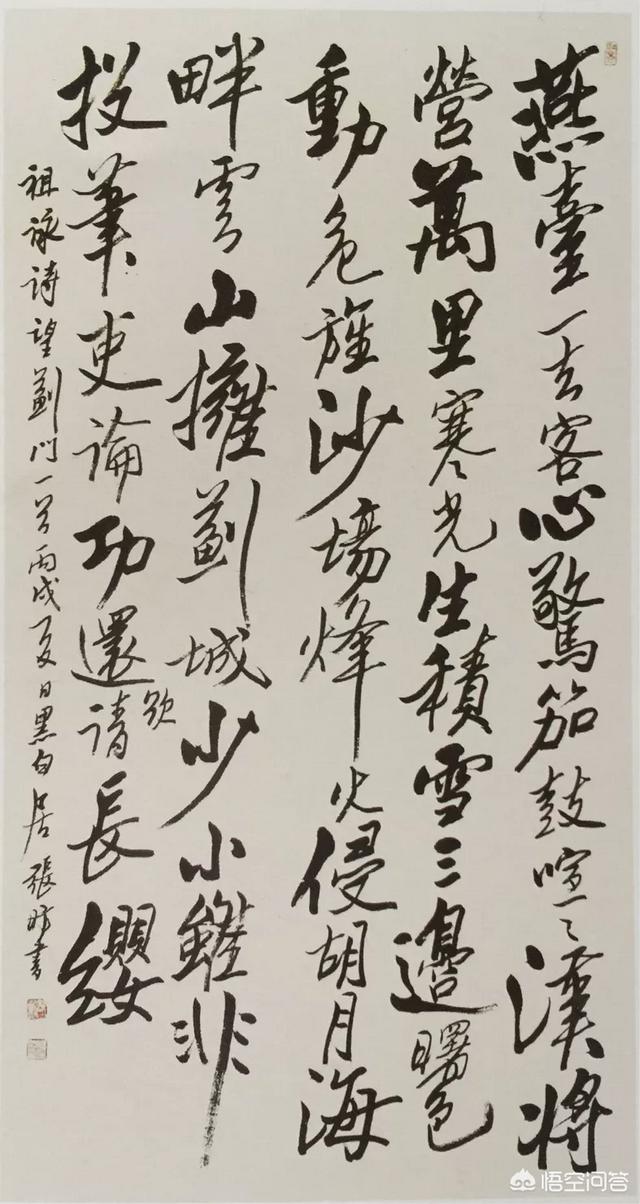 燕臺一去客心驚笳鼓喧〻漢將
營萬里寒光生積雪三邊曙色
動危旌沙場烽火侵胡月海
畔雲山擁薊城少小雖非
投筆吏論功還欲請長纓
祖詠詩望薊門一首丙戌夏日黑白居張書
悟空问答